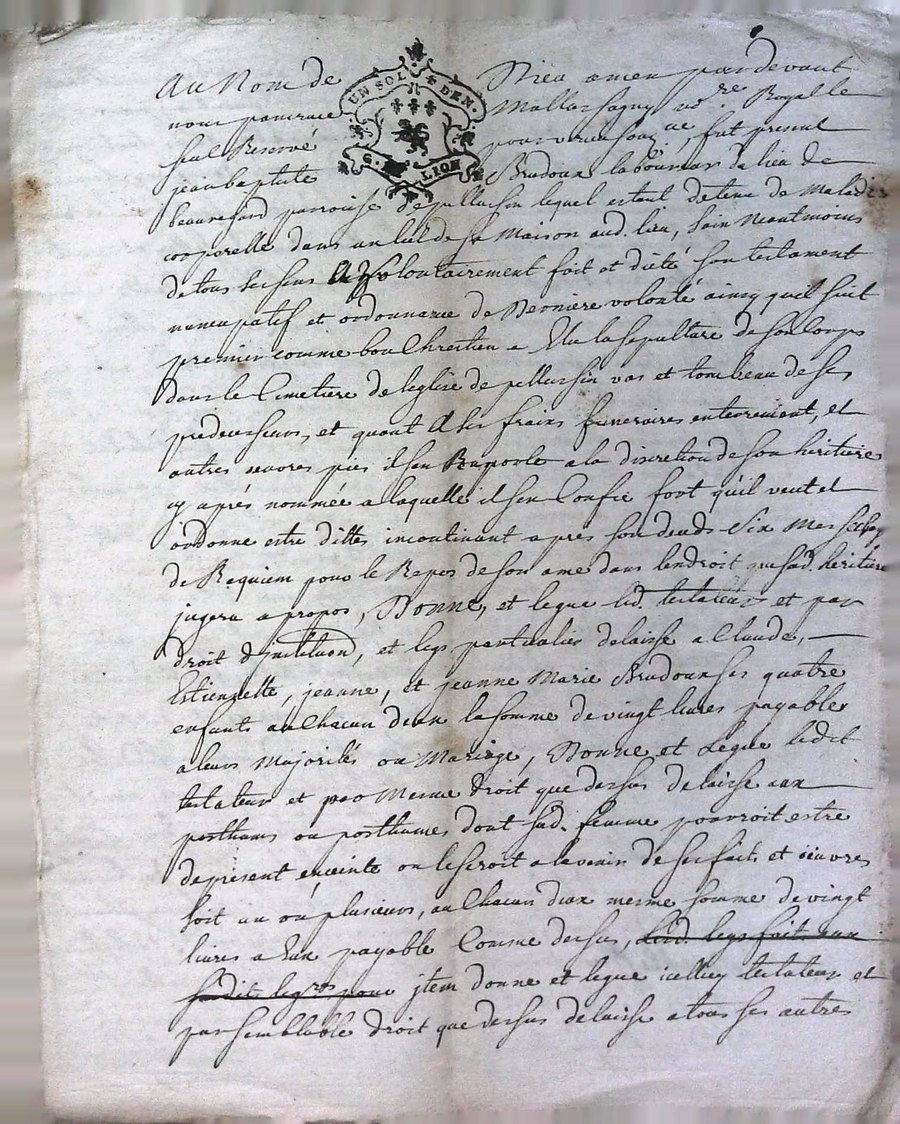 UN SOL 4 DEN.
G. LION
Au Nom de Dieu amen par devant
nous pancrace Mallassagny no.re Royalle
seul Reservé pour soug.né, fut present
jean baptiste Bradoux laboureur du lieu de
beauregard parroisse de pellussin lequel estant detenu de Maladie
corporelle dans un lict de sa Maison aud. lieu, sain neantmoins
de tous ses sens a volontairement fait et dicté son testament
nuncupatif et ordonnance de Derniere volonté ainsy quil suit
premier comme bon Chrestien a Elu la sepulture de son Corps
dans le Cimetiere de leglise de pellussin vas et tombeau de ses
predecesseurs, et quant A ses fraix funeraires enterrement, et
autres œuvres pies il sen Raporte a la discretion de son heritiere
cy après nommée a laquelle il sen Confie fort qu'il veut et
ordonne estre dittes incontinant apres son deceds Six Messes
de Requiem pour le Repos de son ame dans lendroit que sad. heritiere
jugera apropos, Donne, et legue led. testateur et par
droit d'institution, et legs particulier delaisse a Claude,
Estiennette, jeanne, et jeanne Marie Bradoux ses quatre
enfants au Chacun deux la somme de vingt livres payables
a leurs Majorités ou Mariage, Donne et Legue ledit
testateur et par Meme droit que dessus delaisse aux
posthume ou posthumes dont sad. femme pourroit estre
de present enceinte ou le seroit a lavenir de ses faits et œuvres
soit un ou plusieurs, au Chacun deux mesme somme de vingt
livres a Eux payable Comme dessus, led. legs fait aux
sudits leg.res pour jtem donne et legue icelluy testateur et
par semblable droit que dessus delaisse a tous ses autres